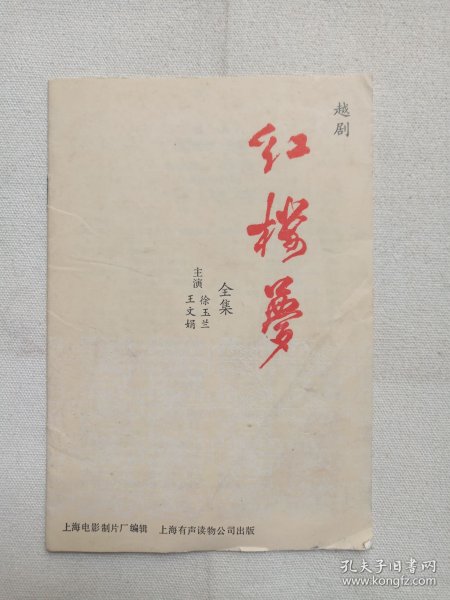 越剧
红楼梦
全集
主演
徐玉兰
王文娟
上海电影制片厂编辑 上海有声读物公司出版
孔夫子旧书网
www.kongfz.com